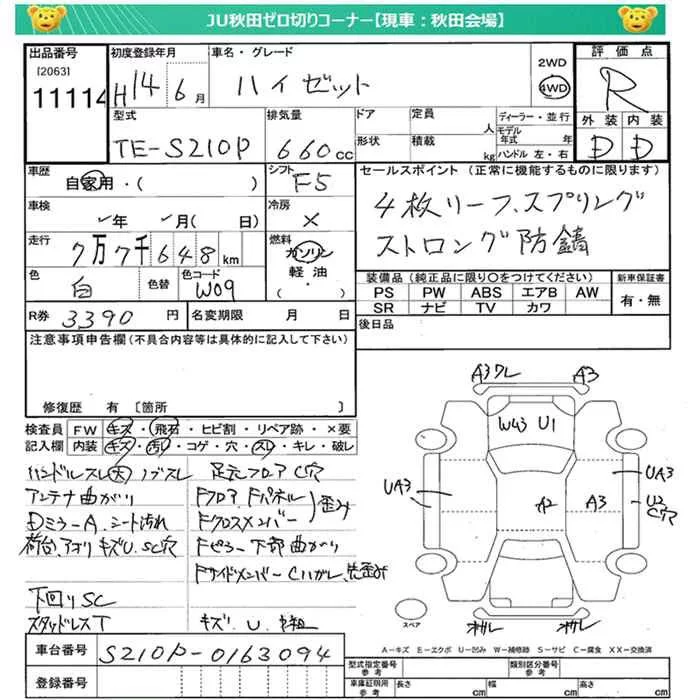 JU秋田ゼロ切りコーナー【現車：秋田会場】
出品番号
[2063]
11114
初度登録年月
H14 6月
車名・グレード
ハイゼット
2WD
4WD
評価点
R
外装 内装
D D
型式
TE-S210P
排気量
660cc
ドア
形状
定員
人
積載
kg
ディーラー・並行
モデル年式
年
ハンドル 左・右
車歴
自家用・( )
シフト
F5
車検
年 月( 日)
冷房
×
走行
7万7千648km
燃料
ガソリン
軽油・
( )
色
白
色替
色コード
W09
R券 3390円
名変期限 月 日
セールスポイント (正常に機能するものに限ります)
4枚リーフ、スプリング
ストロング防錆
装備品 (純正品に限り○をつけてください)
PS PW ABS エアB AW
SR ナビ TV カワ
新車保証書
有・無
後日品
注意事項申告欄 (不具合内容等は具体的に記入して下さい)
修復歴 有 〔箇所 〕
検査員記入欄
FW キズ・飛石・ヒビ割・リペア跡・×要
内装 キズ・汚れ・コゲ・穴・スレ・キレ・破レ
ハンドルスレ(大) ノブスレ
アンテナ曲がり
DミラーA、シート汚れ
荷台、アオリ キズU、SC穴
下回りSC
スタッドレスT
足元フロア C穴
Fフロア Fパネル
Fクロスメンバー
歪み
Fピラー下部曲がり
Fサイドメンバー Cハガレ、先歪み
キズ、U、
A3ワレ A3
W43 U1
UA3
A2 A3
UA3
U2
C穴
スペア
A－キズ E－エクボ U－凹み W－補修跡 S－サビ C－腐食 XX－交換済
車台番号 S210P-0163094
登録番号
型式指定番号
参考
類別区分番号
参考
車庫証明用
参考
長さ cm 幅 cm 高さ cm